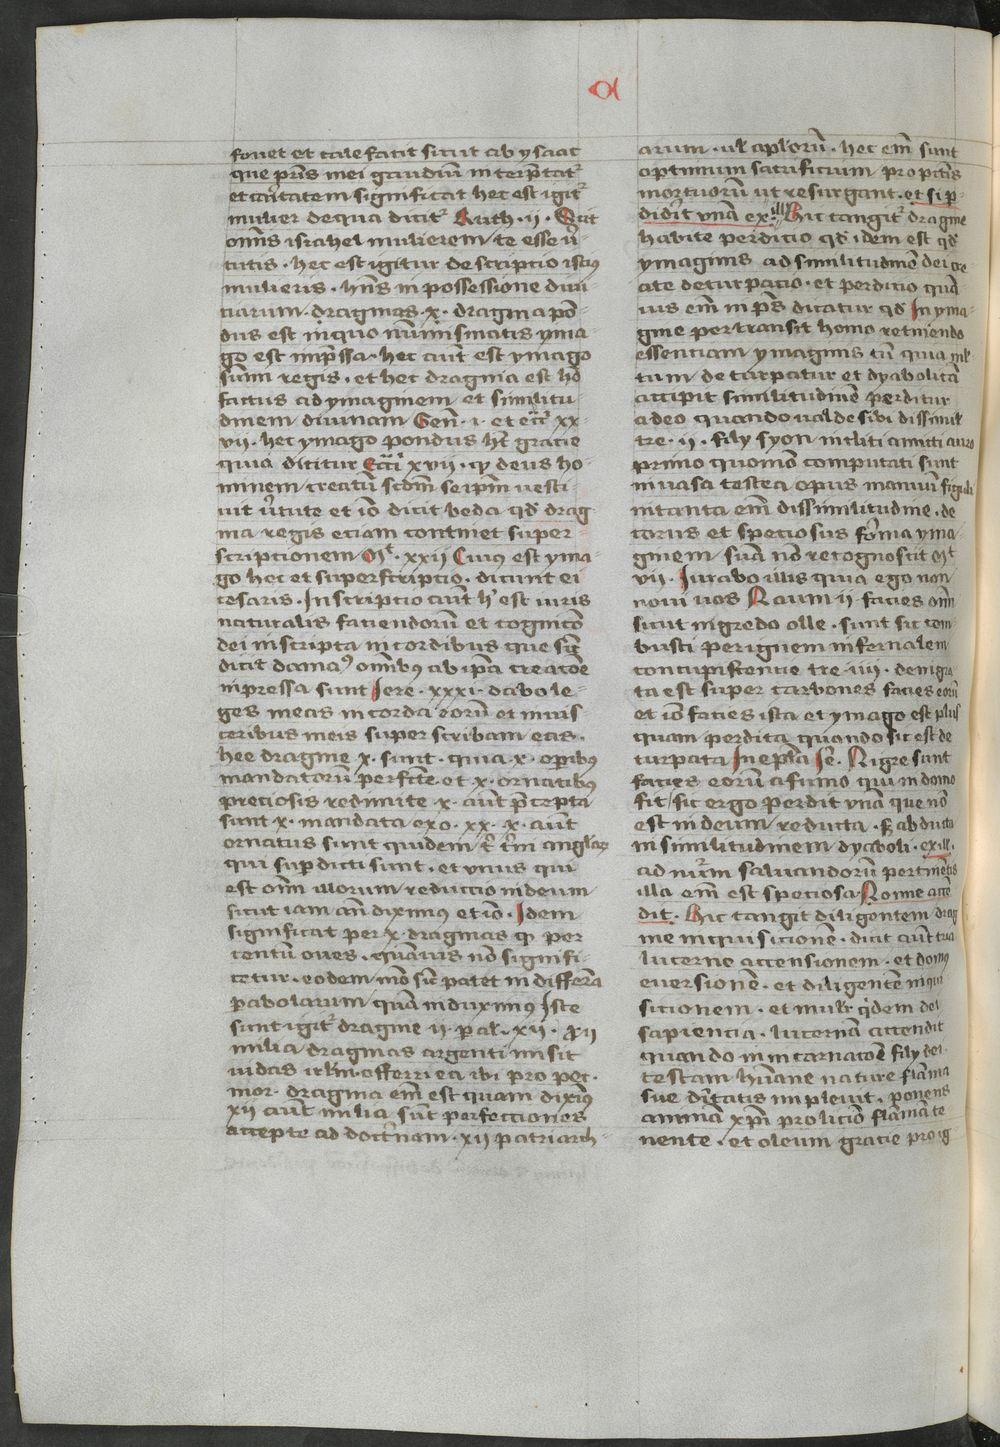 α
fouet et calefacit sicut ab ysaac
que pr̄is mei gaudiū interp̄tat᷑
et caritatem significat hec est igit᷑
mulier de qua dicit᷑ Ruth · ii · Scit
om̄is israhel mulierem te esse v̄
tutis · hec est igitur descriptio isti9
mulieris · hn̄s in possessione diui
tiarum · dragmas · x · dragma pō
dus est in quo nūmismatis yma
go est imp̄ssa · hec aut̄ est ymago
sūmi regis · et hec dragma est hō
factus ad ymaginem et similitu
dinem diuinam Gen̄ · i · et ecc̄i xx
vii · hec ymago pondus hꝫ gracie
quia dicitur Ecc̄i xvii · qꝫ deus ho
minem creatū scdm̄ seip̄m vesti
uit v̄tute et iō dicit beda qd̄ drag
ma regis eciam continet super
scriptionem Mt · xxii Cuius est yma
go hec et superscriptio · dicunt ei
cesaris · Inscriptio aut̄ h' est iuris
naturalis faciendorū et cognicō
dei inscripta in cordibus que sūt
dicit damas9 omībus ab ip̄a creacōe
inpressa sunt Jere · xxxi · dabo le
ges meas in corda eorū et in uis
ceribus meis super scribam eas ·
hee dragme x · sunt · quia x · op̄ibus
mandatorū perfc̄te et x · ornatibus
preciosis redimite · x · aut̄ p̄cepta
sunt x · mandata exo · xx · x · aut̄
ornatus sunt quidem
qui sup̄dicti sunt · et vnus qui
est om̄ illorum reductio in deum
sicut iam an̄ diximus et iō · Idem
significat per x · dragmas qꝫ per
centū oues · quāuis nō signifi
cetur · eodem mō sic̄ patet in differēcia
pabolarum quā induximus Iste
sunt igit᷑ dragme ii · pal · xii ·
milia dragmas argenti misit
iudas irl̄m offerri ea ibi pro pec ·
mor · dragma em̄ est quam dixim9
xii aut̄ milia sūt perfectiones
accepte ad doct̄nam · xii patriarch
arum · ul' apl'orū · hec em̄ sunt
optimum sacrificium pro pctīs
mortuorū ut resurgant · et si p
didit vnā ex ill' Hic tangit᷑ dragme
habite perdicio qd̄ idem est qd̄
ymaginis ad similitudinē dei cre
ate deturpacio · et perdicio quā
uis em̄ in ps̄ dicatur qd̄ In yma
gine pertransit homo retinendo
essentiam ymaginis tn̄ quia ml'
tum deturpatur et dyabolicā
accipit similitudinē perditur
adeo quando ualde sibi dissimil'
tre · ii · filij syon incliti amicti auro
primo quomō computati sunt
in uasa testea opus manuū figuli
in tanta em̄ dissimilitudine · de
corus et speciosus forma yma
ginem suā nō recognoscit Mt
vii · Iurabo illis quia ego non
noui uos Naum ii · facies om̄
sicut nigredo olle · sunt sic com
busti per ignem infernalem
concupiscencie tre · iiii · denigra
ta est super carbones facies eorū
et iō facies ista et ymago est plus
quam perdita quando sic est de
turpata In epl̄a Ie · Nigre sunt
facies eorū a fumo qui in domo
fit / sic ergo perdit vnā que nō
est in deum reducta · s abducta
in similitudinem dyaboli · ex ill ·
ad nūm saluandorū pertinētis
illa em̄ est speciosa · Nonne accē
dit · Hic tangit diligentem drag
me inquisicionē · dicit aut̄ tria
lucerne accensionem · et domus
euersionē · et diligentē inqui
sicionem · et mulr̄ q̄dem dei
sapiencia · lucernā accendit
quando in incarnacōe filij dei ·
testam hūane nature flāma
sue diuitatis impleuit · ponens
animā xp̄i pro licino flāmā te
nente · et oleum gracie pro ig